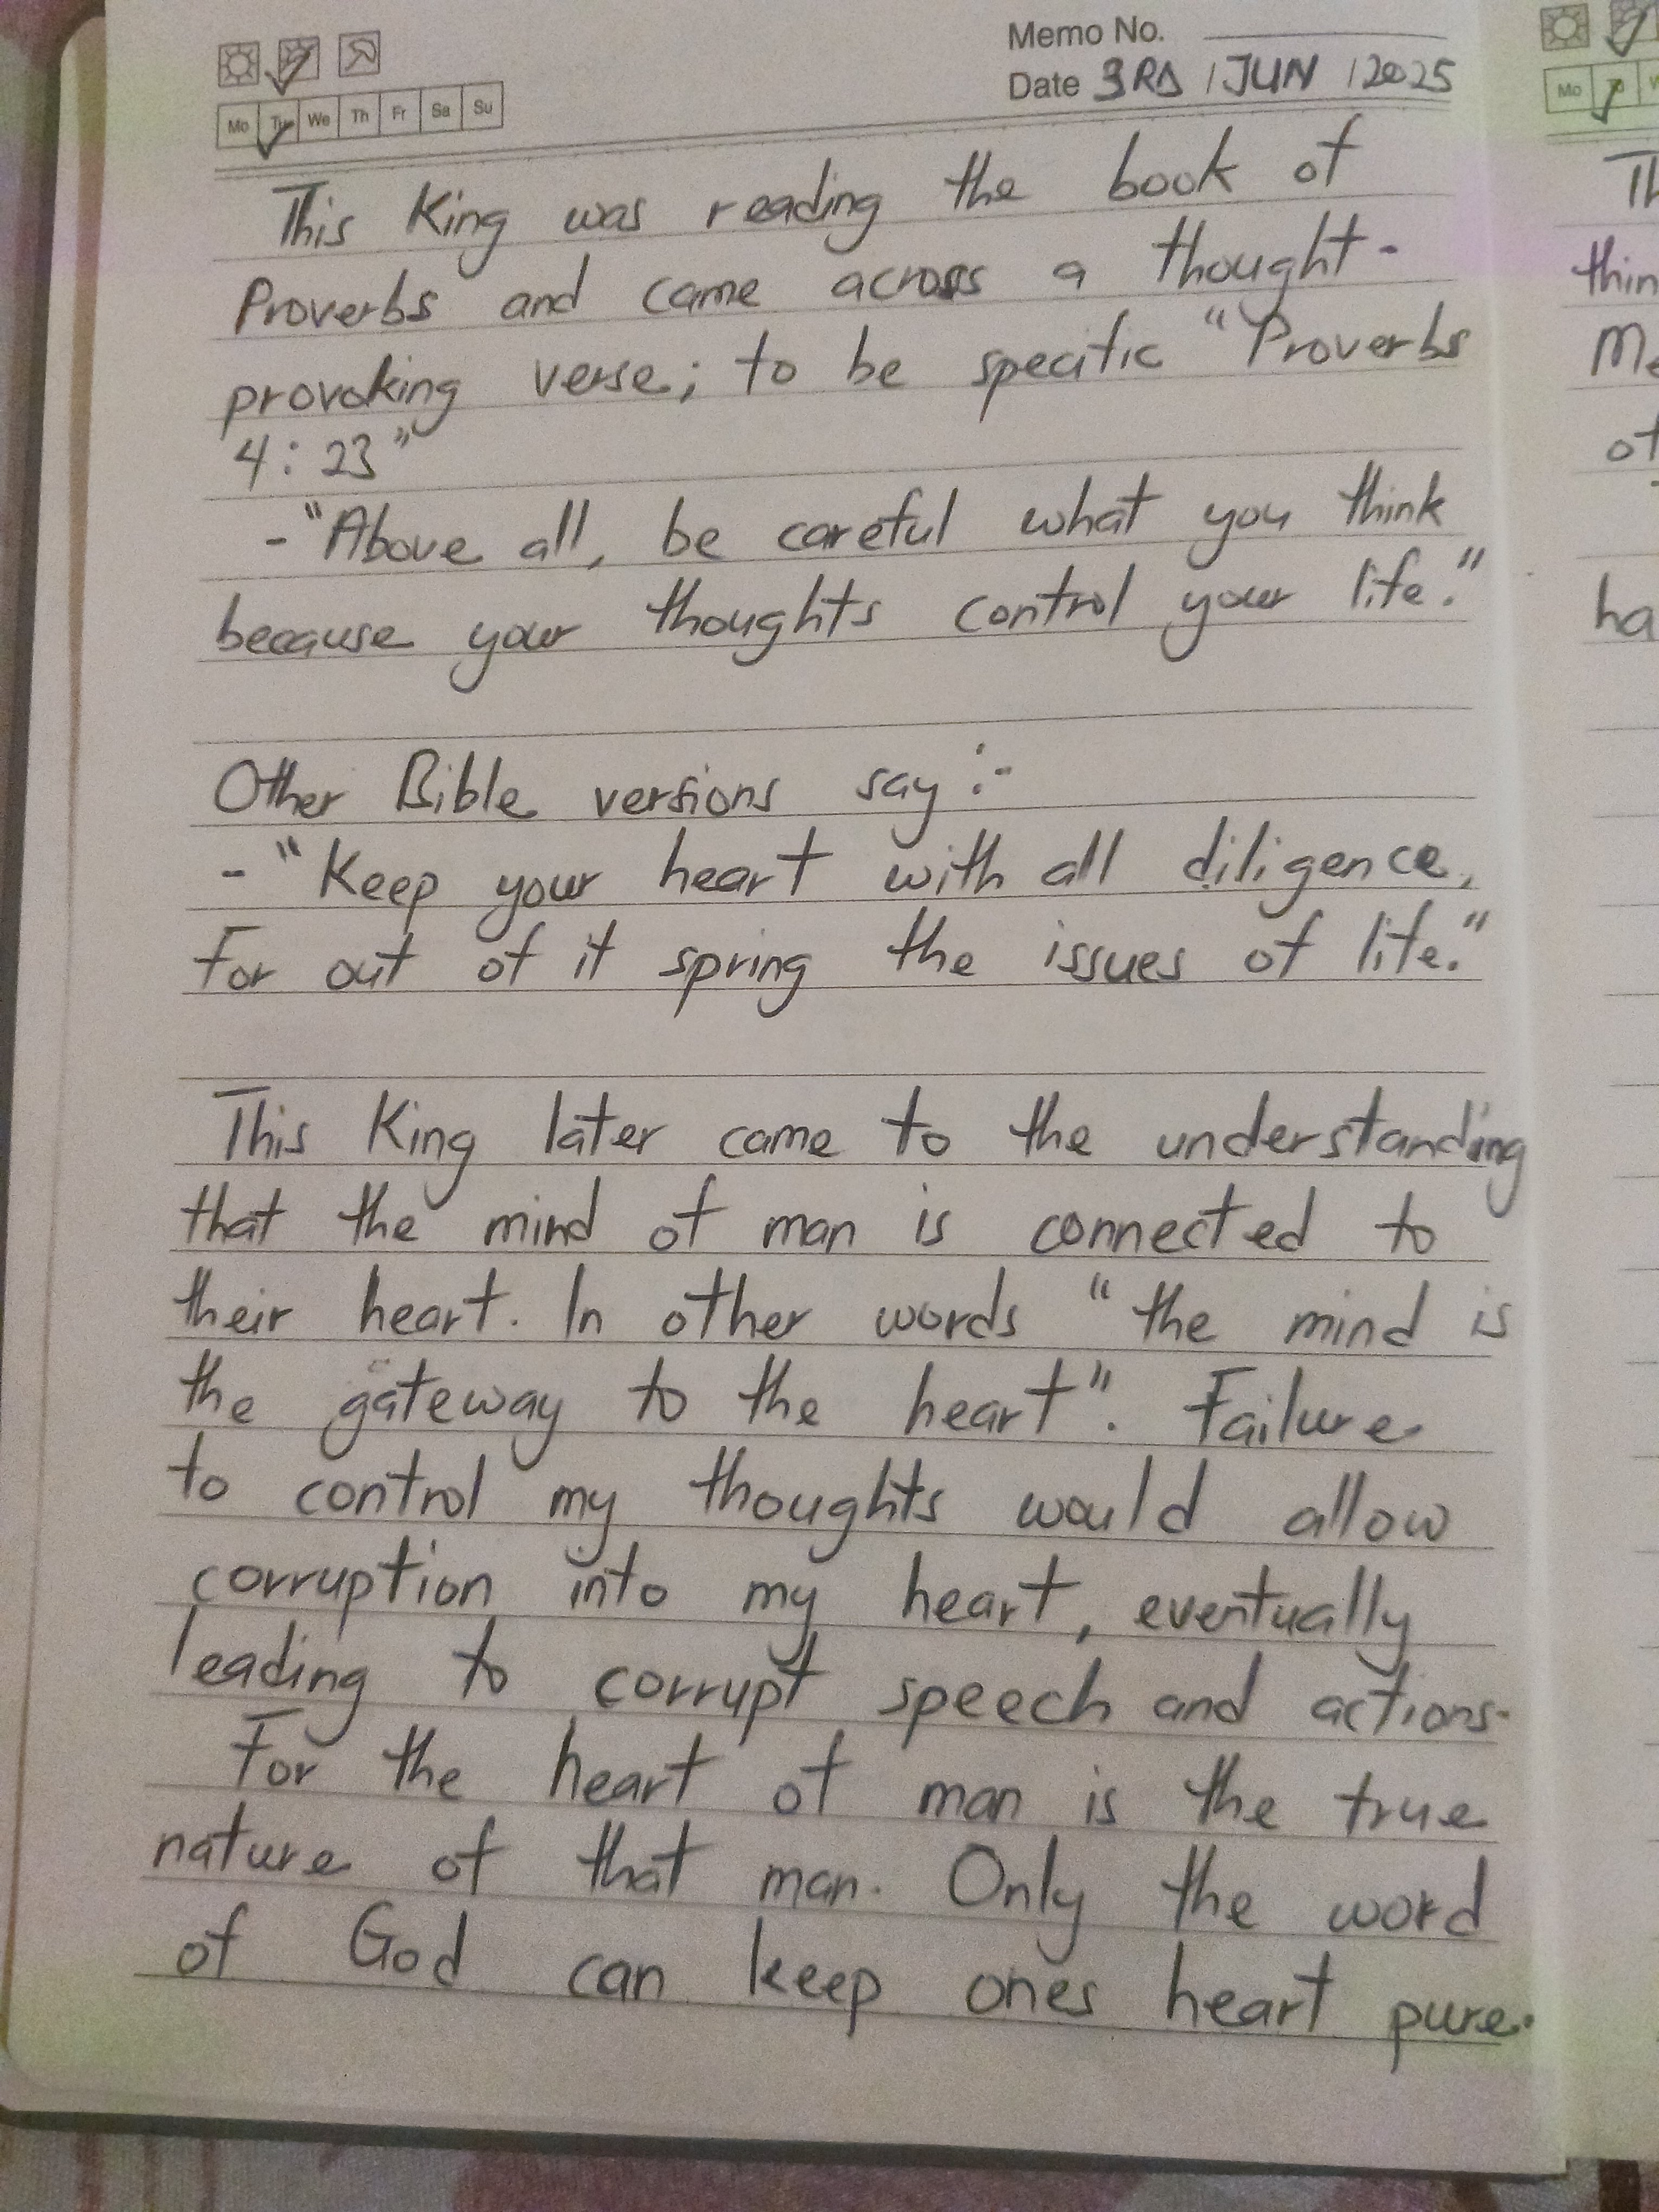 Memo No.
Date 3RD / JUN / 2025
Mo Tu We Th Fr Sa Su
This King was reading the book of
Proverbs and came across a thought-
provoking verse; to be specific "Proverbs
4:23"
- "Above all, be careful what you think
because your thoughts control your life."
Other Bible versions say :-
- "Keep your heart with all diligence,
For out of it spring the issues of life."
This King later came to the understanding
that the mind of man is connected to
their heart. In other words "the mind is
the gateway to the heart". Failure
to control my thoughts would allow
corruption into my heart, eventually
leading to corrupt speech and actions.
For the heart of man is the true
nature of that man. Only the word
of God can keep ones heart pure.
Mo
Th
thin
of
ha